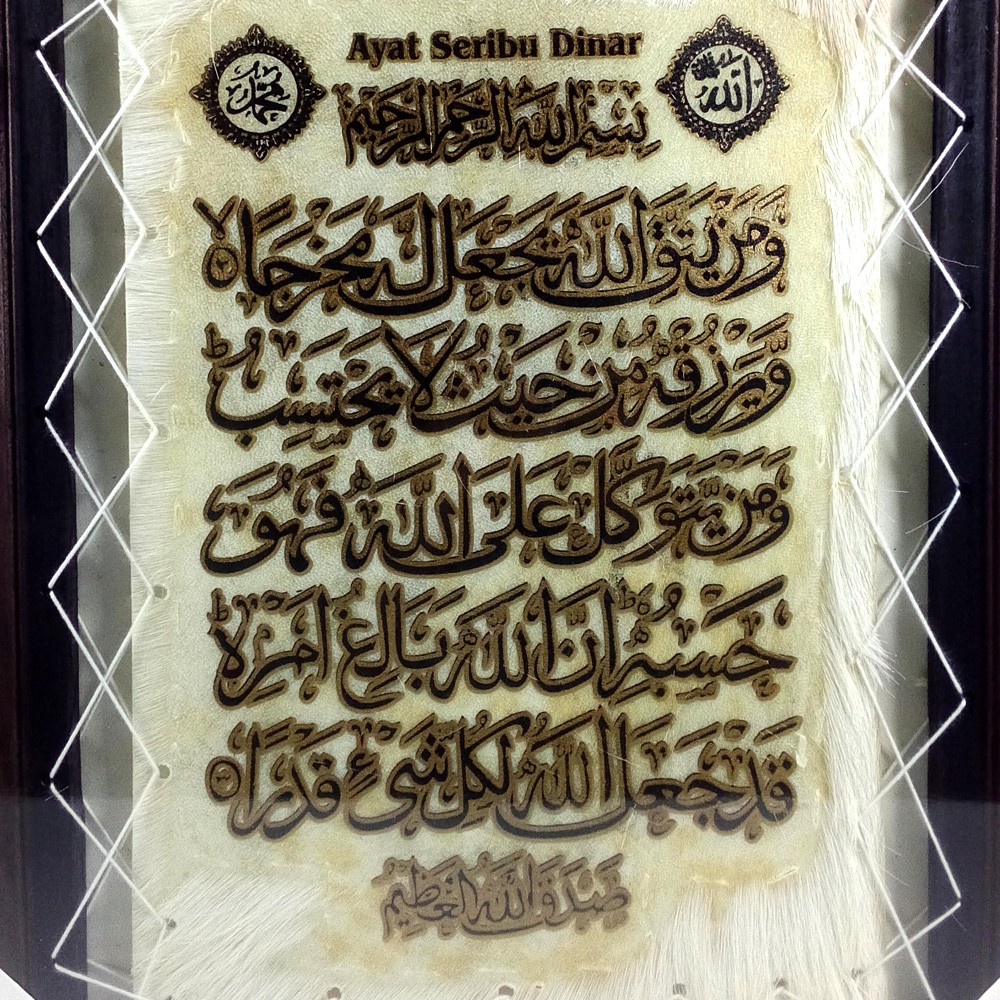 Ayat Seribu Dinar
محمد
الله ﷻ
بِسْمِ اللّٰهِ الرَّحْمٰنِ الرَّحِيْمِ
وَمَنْ يَّتَّقِ اللّٰهَ يَجْعَلْ لَّهٗ مَخْرَجًاۙ ۝٢
وَّيَرْزُقْهُ مِنْ حَيْثُ لَا يَحْتَسِبُؕ
وَمَنْ يَّتَوَكَّلْ عَلَى اللّٰهِ فَهُوَ
حَسْبُهٗؕ اِنَّ اللّٰهَ بَالِغُ اَمْرِهٖؕ
قَدْ جَعَلَ اللّٰهُ لِكُلِّ شَيْءٍ قَدْرًا ۝٣
صَدَقَ اللّٰهُ الْعَظِيْمُ